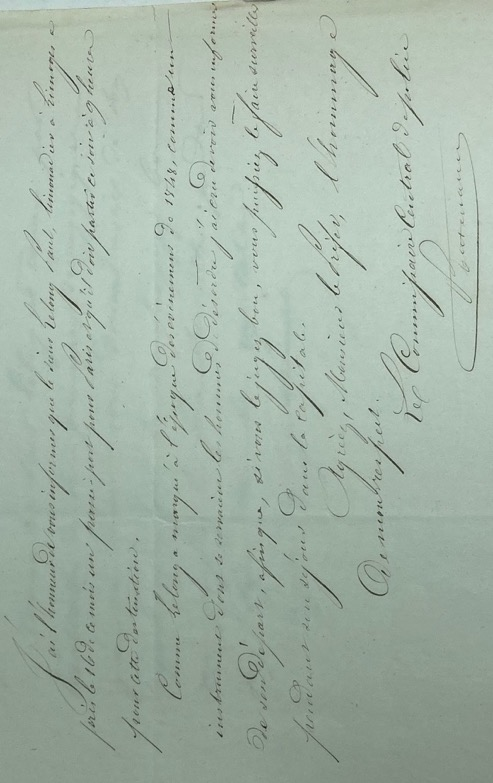 J'ai l'honneur de vous informer que le sieur Lelong Paul, limonadier à Limoges a
pris le 16 de ce mois un passe-port pour Paris et qu'il doit partir ce soir à 9 heures
pour cette destination.
Comme Lelong a marqué à l'époque des événements de 1848, comme un
instrument dont se servaient les hommes de désordre, j'ai cru devoir vous informer
de son départ, afin que, si vous le jugez bon, vous puissiez le faire surveiller
pendant son séjour dans la capitale.
Agréez, Monsieur le Préfet, l'hommage
de mon respect.
Le Commissaire Central de police